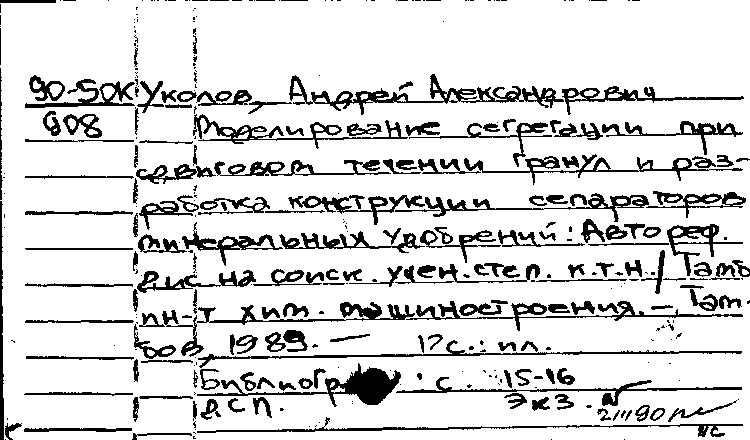 90-50к Уколов, Андрей Александрович
908 Моделирование сегрегации при
сдвиговом течении гранул и раз-
работка конструкции сепараторов
минеральных удобрений: Автореф.
дис. на соиск. учен. степ. к.т.н. / Тамб.
ин-т хим. машиностроения. — Там-
бов, 1989. — 17с.: ил.
Библиогр : с. 15-16
ДСП. Экз. №